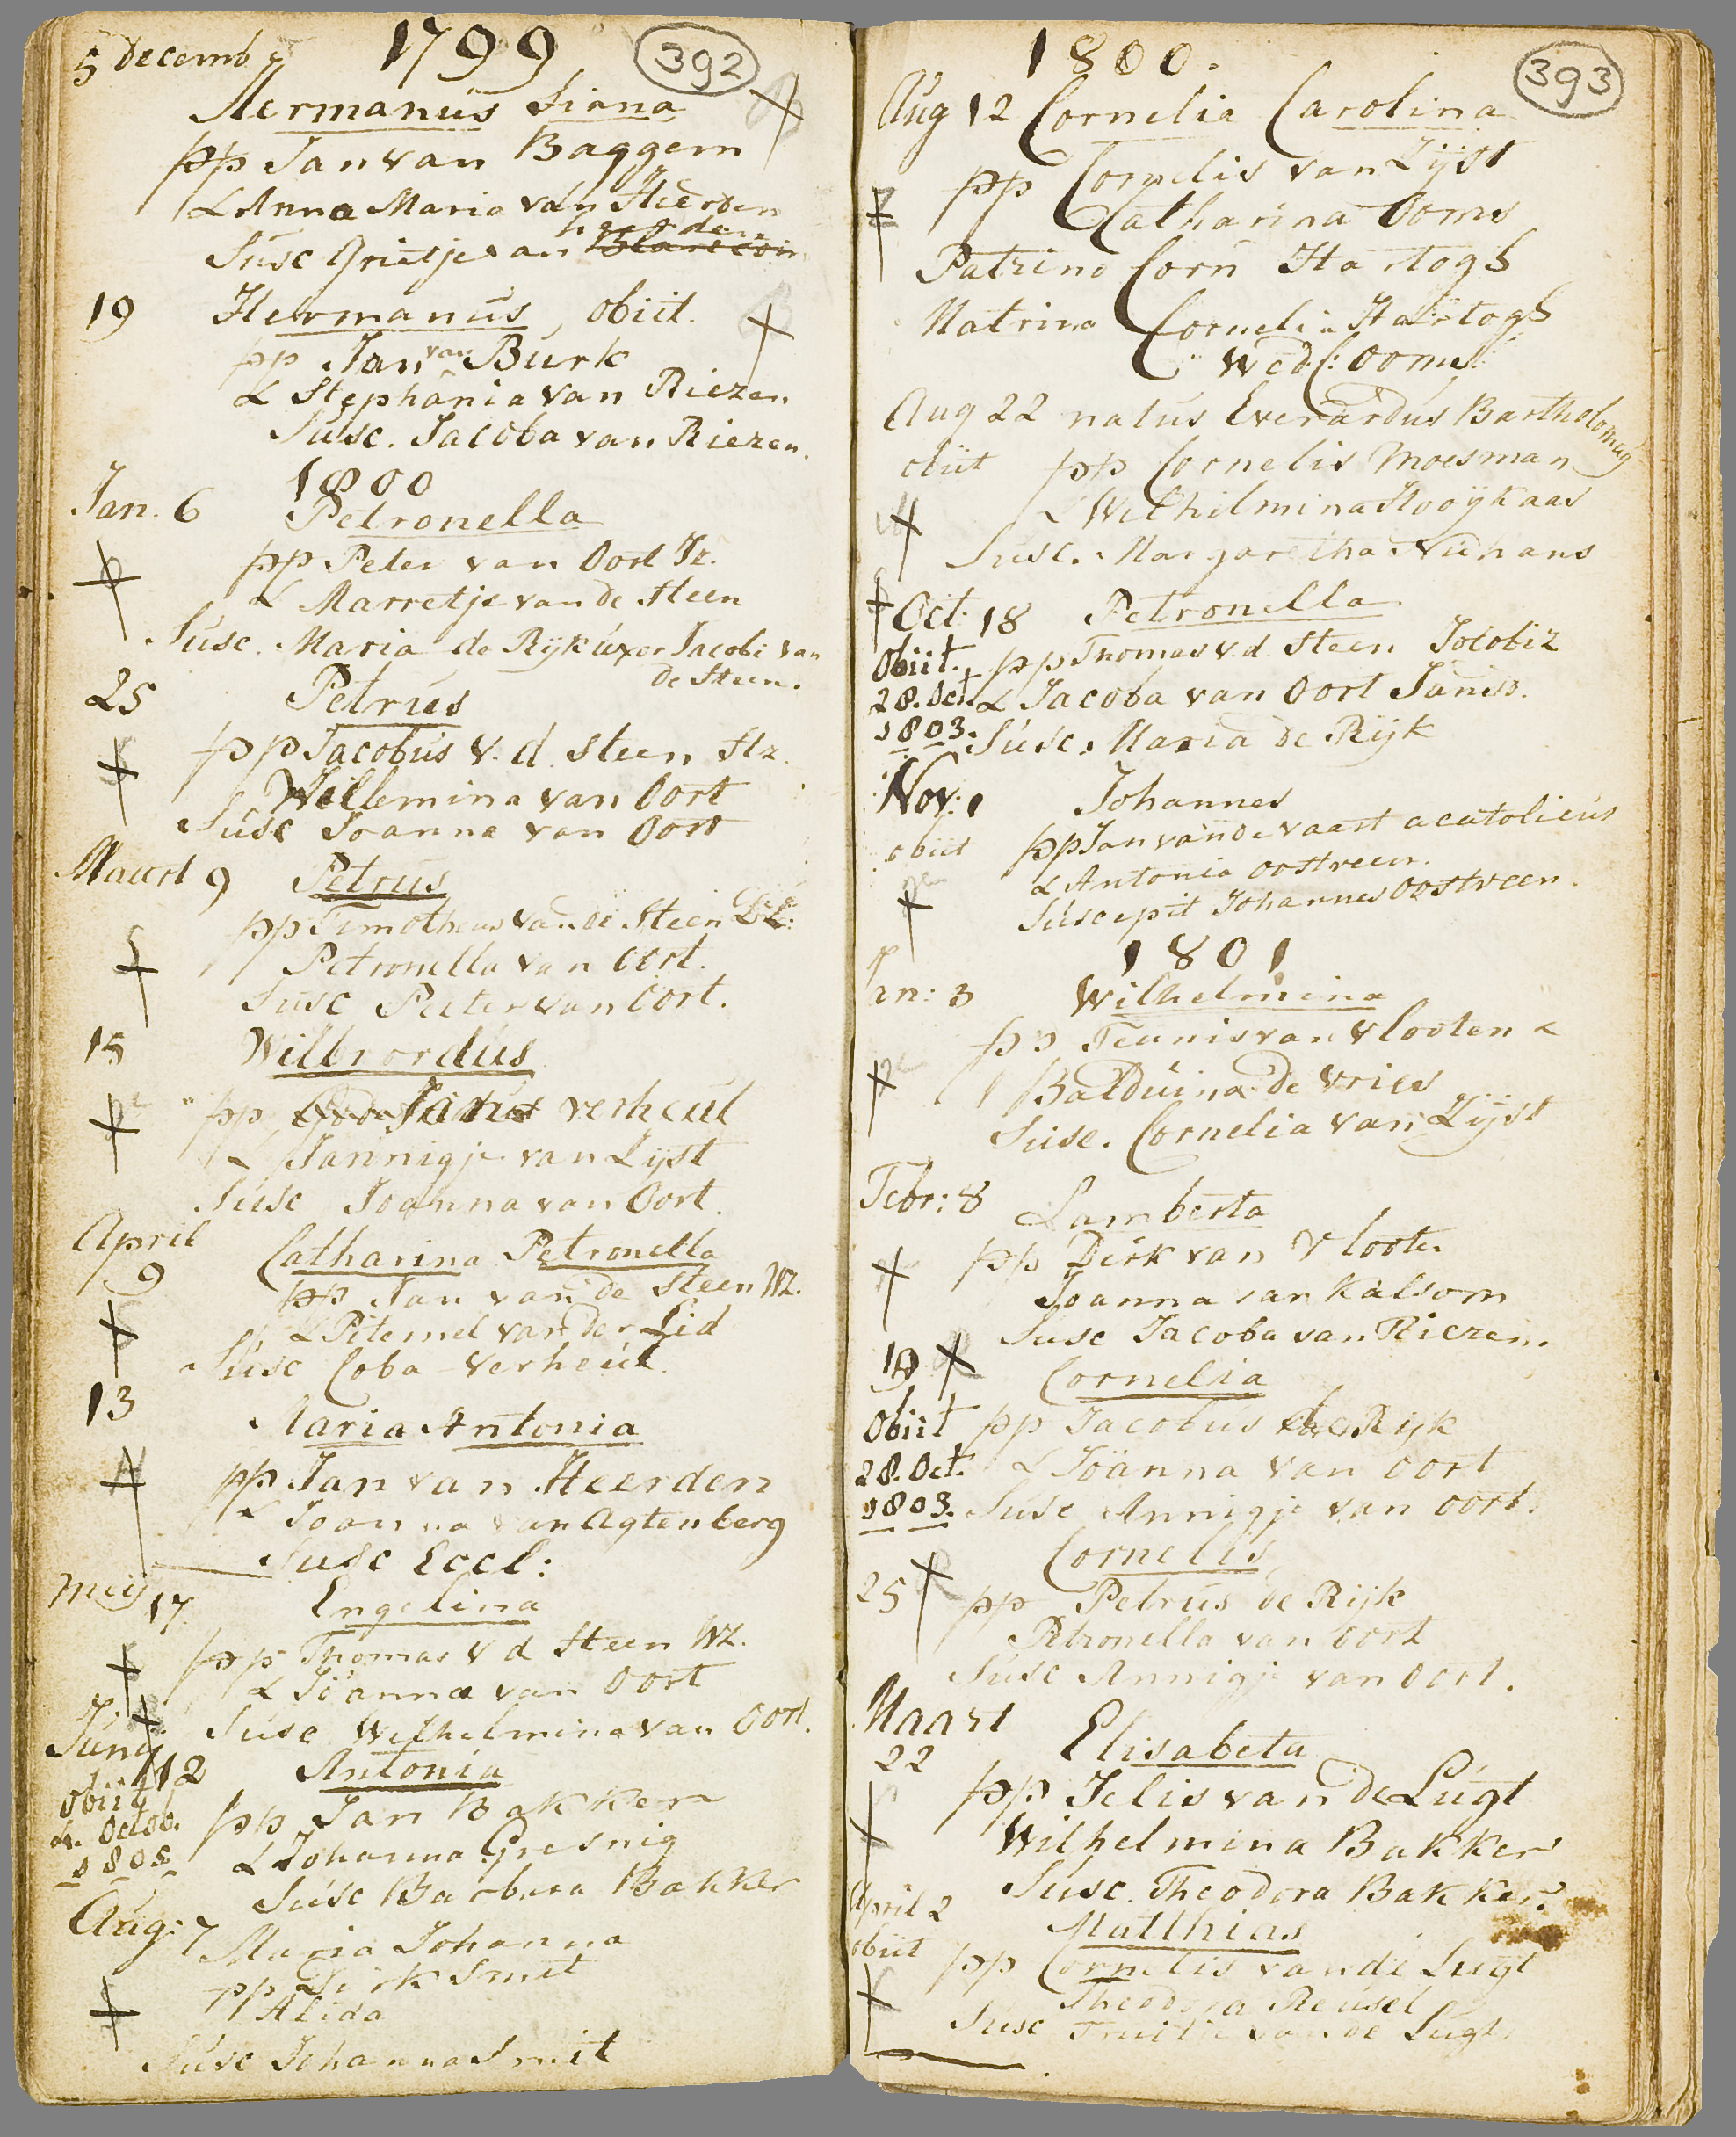 5 decemb 1799 392
Hermanus Siana
pp Jan van Baggem
& Anna Maria van Hierden
heerden
Susc Grietje van Blaricom
19 Hermanus, obiit.
pp Jan van Burk
& Stephania van Riezen
Susc. Jacoba van Riezen.
1800
Jan. 6 Petronella
pp Peter van Oort Jz.
& Marretje van de Steen
Susc. Maria de Rijk uxor Jacobi van
de Steen.
25 Petrus
pp Jacobus v. d. Steen Hz.
Willemina van Oort
Susc Joanna van Oort
Maart 9 Petrus
pp Timotheus van de Steen
Petronella van Oort.
Susc Pieter van Oort.
15 Wilbrordus
pp Janus verheul
& Jannigje van Lijst
Susc Joanna van Oort.
April
9 Catharina Petronella
pp Jan van de Steen Wz.
& Piternel van der Lid
Susc Coba Verheul.
13
Maria Antonia
pp Jan van Heerden
& Joanna van Agtenberg
Susc Eccl:
Meij 17 Engelina
pp Thomas v d Steen Wz.
& Joanna van Oort
Susc Wilhelmina van Oort.
Junij
12 Antonia
obiit pp Jan Bakker
Octob. & Johanna Gresnig
1805 Susc Barbera Bakker
Aug: 7 Maria Johanna
pp Dirk Smit
Alida
Susc Johanna Smit
1800. 393
Aug 12 Cornelia Carolina
pp Cornelis van Zijst
Catharina Ooms
Patrino Corn Hartogh
Matrina Cornelia Hartogh
Wed C: Ooms.
Aug 22 natus Everardus Bartholomeus
obiit pp Cornelis Moesman
& Wilhilmina Hooijkaas
Susc. Margaretha Niehans
Oct. 18 Petronella
Obiit. pp Thomas v. d. Steen Jocobiz
28. Oct. & Jacoba van Oort Jansd.
1803. Susc. Maria de Rijk
Nov: 1 Johannes
obiit pp Jan van de vaart acatolicus
& Antonia oostveen.
Suscepit Johannes Oostveen.
1801
Jan: 3 Wilhelmina
pp Teunis van Vlooten &
Balduina De Vries
Susc. Cornelia van Zijst
Febr: 8 Lamberta
pp Dirk van Vlooten
Joanna van Kalsom
Susc Jacoba van Riezen.
19 Cornelia
Obiit pp Jacobus de Rijk
28. Oct. & Joanna van Oort
1803. Susc Annigje van Oort.
Cornelis
25 pp Petrus de Rijk
Petronella van Oort
Susc Annigje van Oort.
Maart
22 Elisabeta
pp Jelis van de Lugt
Wilhelmina Bakker
Susc. Theodora Bakker.
April 2 Matthias
obiit pp Cornelis van de Lugt
Theodora Reusel
Susc Truitje van de Lugt.